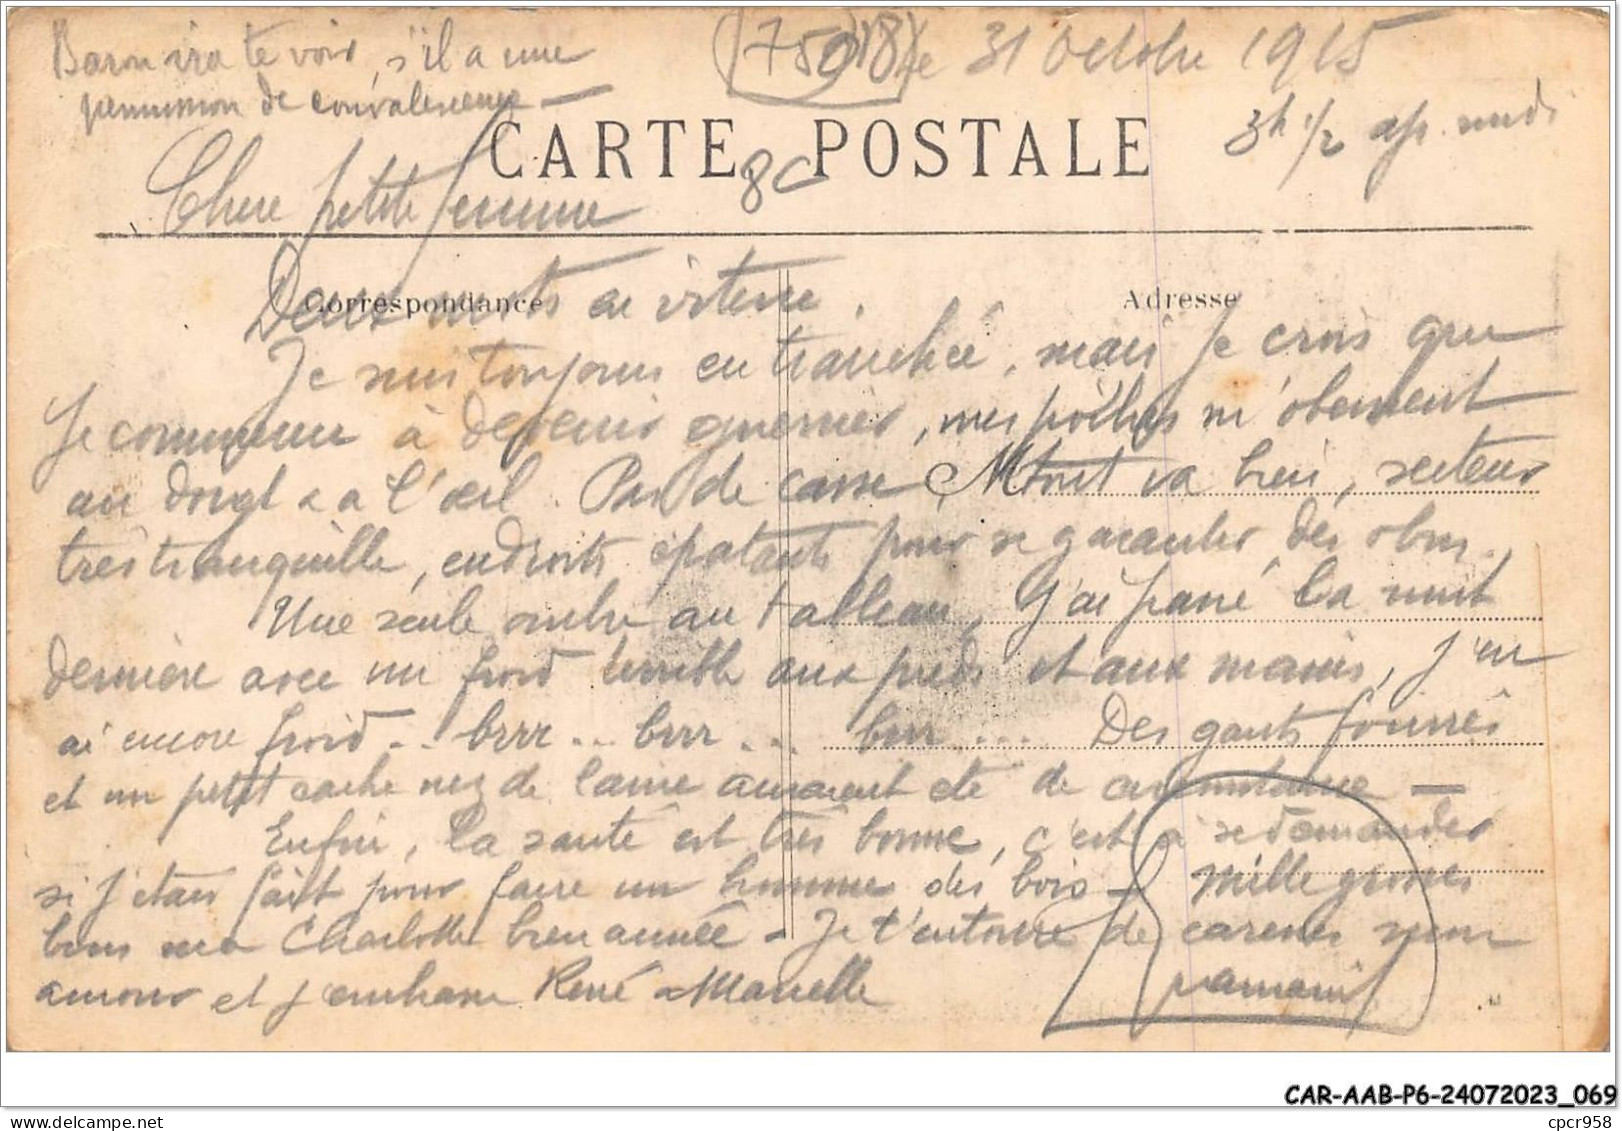 Baron ira te voir, s'il a une
permission de convalescence —
(75018)
le 31 Octobre 1915
3h 1/2 ap. midi
CARTE POSTALE
8C
Chere petite femme
Correspondance
Adresse
Deux mots en vitesse.
Je suis toujours en tranchée, mais je crois que
je commence à devenir guerrier, mes poilus m'obeissent
au doigt & a l'œil. Pas de casse tout va bien, secteur
très tranquille, endroits épatants pour se garantir des obus.
Une seule ombre au tableau, j'ai passé la nuit
dernière avec un froid terrible aux pieds et aux mains, j'en
ai encore froid... brrr... brrr... brrr... Des gants fourrés
et un petit cache nez de laine auraient été de circonstance —
Enfin, la santé est très bonne, c'est à se demander
si j'étais fait pour faire un homme des bois — Mille grosses
bises ma Charlotte bien aimée — Je t'entoure de caresses mon
amour et j'embrasse René & Marcelle
CAR-AAB-P6-24072023_069
cpcr958